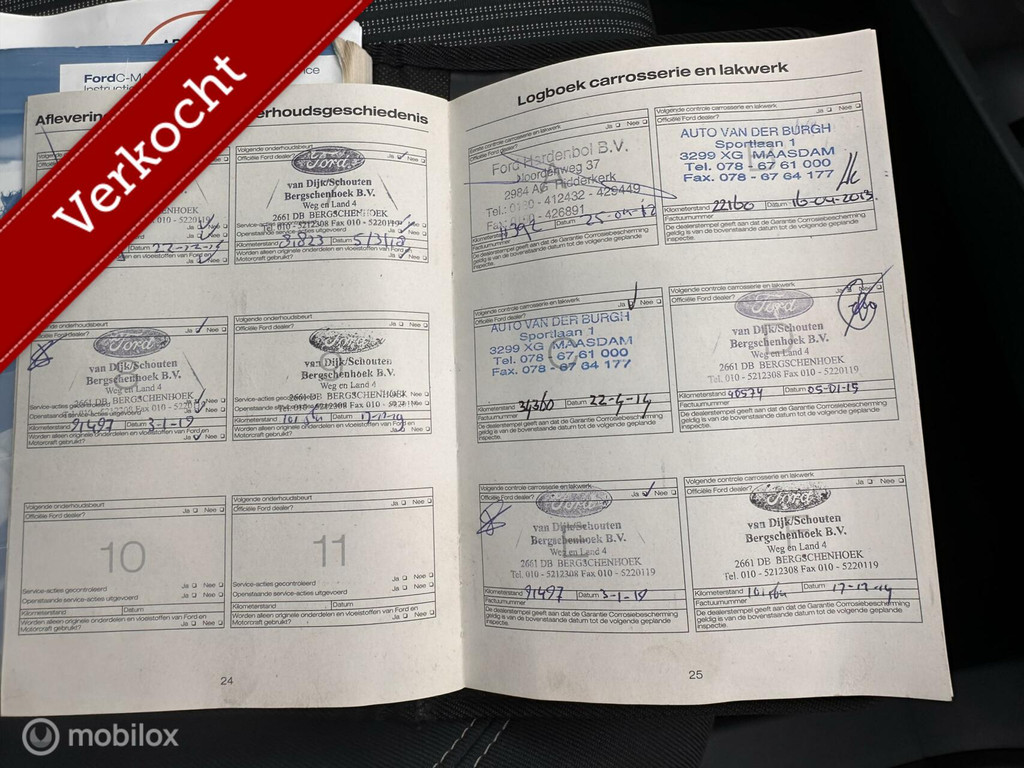 Verkocht
FordC-MA
Aflevering
erhoudsgeschiedenis
Officiële Ford dealer?
BERGSCHENHOEK
Fax 010 - 5220119
Datum 22-12-16
Ja Nee
Volgende onderhoudsbeurt
Officiële Ford dealer? Ja Nee
Ford
van Dijk/Schouten
Bergschenhoek B.V.
Weg en Land 4
2661 DB BERGSCHENHOEK
Tel. 010 - 5212308 Fax 010 - 5220119
Kilometerstand Datum
Worden alleen originele onderdelen en vloeistoffen van Ford en
Motorcraft gebruikt? Ja Nee
onderhoudsbeurt
Ford dealer? Ja Nee
Ford
van Dijk/Schouten
Bergschenhoek B.V.
Weg en Land 4
2661 DB BERGSCHENHOEK
Tel. 010 - 5212308 Fax 010 - 5220119
Kilometerstand 91497 Datum 3-1-19
Worden alleen originele onderdelen en vloeistoffen van Ford en
Motorcraft gebruikt? Ja Nee
Volgende onderhoudsbeurt
Officiële Ford dealer? Ja Nee
Ford
van Dijk/Schouten
Bergschenhoek B.V.
Weg en Land 4
2661 DB BERGSCHENHOEK
Tel. 010 - 5212308 Fax 010 - 5220119
Kilometerstand Datum 17-12-19
Worden alleen originele onderdelen en vloeistoffen van Ford en
Motorcraft gebruikt? Ja Nee
Volgende onderhoudsbeurt
Officiële Ford dealer? Ja Nee
10
Service-acties gecontroleerd Ja Nee
Openstaande service-acties uitgevoerd Ja Nee
Kilometerstand Datum
Worden alleen originele onderdelen en vloeistoffen van Ford en
Motorcraft gebruikt? Ja Nee
Volgende onderhoudsbeurt
Officiële Ford dealer? Ja Nee
11
Service-acties gecontroleerd Ja Nee
Openstaande service-acties uitgevoerd Ja Nee
Kilometerstand Datum
Worden alleen originele onderdelen en vloeistoffen van Ford en
Motorcraft gebruikt? Ja Nee
24
Logboek carrosserie en lakwerk
Eerste controle carrosserie en lakwerk
Officiële Ford dealer? Ja Nee
Ford Hardenbol B.V.
Noordenweg 37
2984 AG Ridderkerk
Tel.: 0180 - 412432 - 429449
Fax: 0180 - 426891
Kilometerstand Datum
Factuurnummer
De dealerstempel geeft aan dat de Garantie Corrosiebescherming
geldig is van de bovenstaande datum tot de volgende geplande
inspectie.
Volgende controle carrosserie en lakwerk
Ja Nee
AUTO VAN DER BURGH
Sportlaan 1
3299 XG MAASDAM
Tel. 078 - 67 61 000
Fax. 078 - 67 64 177
Kilometerstand 22160 Datum 16-04-2013
Factuurnummer
De dealerstempel geeft aan dat de Garantie Corrosiebescherming
geldig is van de bovenstaande datum tot de volgende geplande
inspectie.
Volgende controle carrosserie en lakwerk
Officiële Ford dealer? Ja Nee
AUTO VAN DER BURGH
Sportlaan 1
3299 XG MAASDAM
Tel. 078 - 67 61 000
Fax. 078 - 67 64 177
Kilometerstand 34360 Datum 22-4-14
Factuurnummer
De dealerstempel geeft aan dat de Garantie Corrosiebescherming
geldig is van de bovenstaande datum tot de volgende geplande
inspectie.
Volgende controle carrosserie en lakwerk
Officiële Ford dealer? Ja Nee
Ford
van Dijk/Schouten
Bergschenhoek B.V.
Weg en Land 4
2661 DB BERGSCHENHOEK
Tel. 010 - 5212308 Fax 010 - 5220119
Kilometerstand 40574 Datum 05-01-15
Factuurnummer
De dealerstempel geeft aan dat de Garantie Corrosiebescherming
geldig is van de bovenstaande datum tot de volgende geplande
inspectie.
Volgende controle carrosserie en lakwerk
Officiële Ford dealer? Ja Nee
Ford
van Dijk/Schouten
Bergschenhoek B.V.
Weg en Land 4
2661 DB BERGSCHENHOEK
Tel. 010 - 5212308 Fax 010 - 5220119
Kilometerstand 91497 Datum 3-1-19
Factuurnummer
De dealerstempel geeft aan dat de Garantie Corrosiebescherming
geldig is van de bovenstaande datum tot de volgende geplande
inspectie.
Volgende controle carrosserie en lakwerk
Officiële Ford dealer? Ja Nee
Ford
van Dijk/Schouten
Bergschenhoek B.V.
Weg en Land 4
2661 DB BERGSCHENHOEK
Tel. 010 - 5212308 Fax 010 - 5220119
Kilometerstand Datum 17-12-19
Factuurnummer
De dealerstempel geeft aan dat de Garantie Corrosiebescherming
geldig is van de bovenstaande datum tot de volgende geplande
inspectie.
25
mobilox